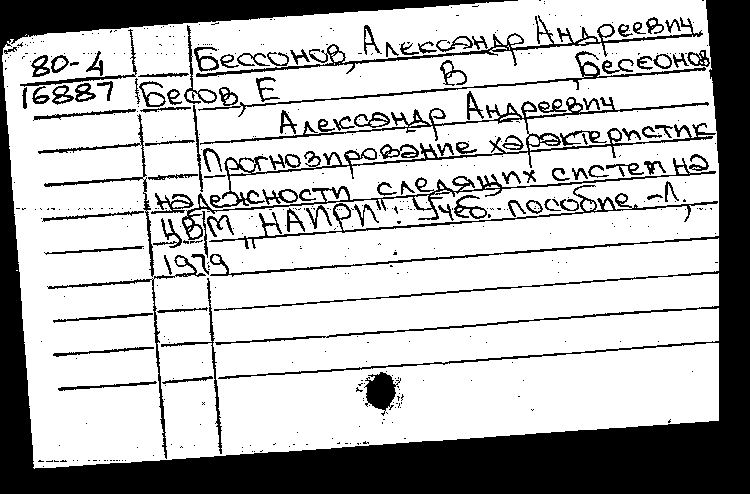 Бессонов, Александр Андреевич.
80-4
16887 Бесов, Е В , Бессонов
Александр Андреевич
Прогнозирование характеристик
надежности следящих систем на
ЦВМ „НАИРИ": Учеб. пособие. -Л,
1979